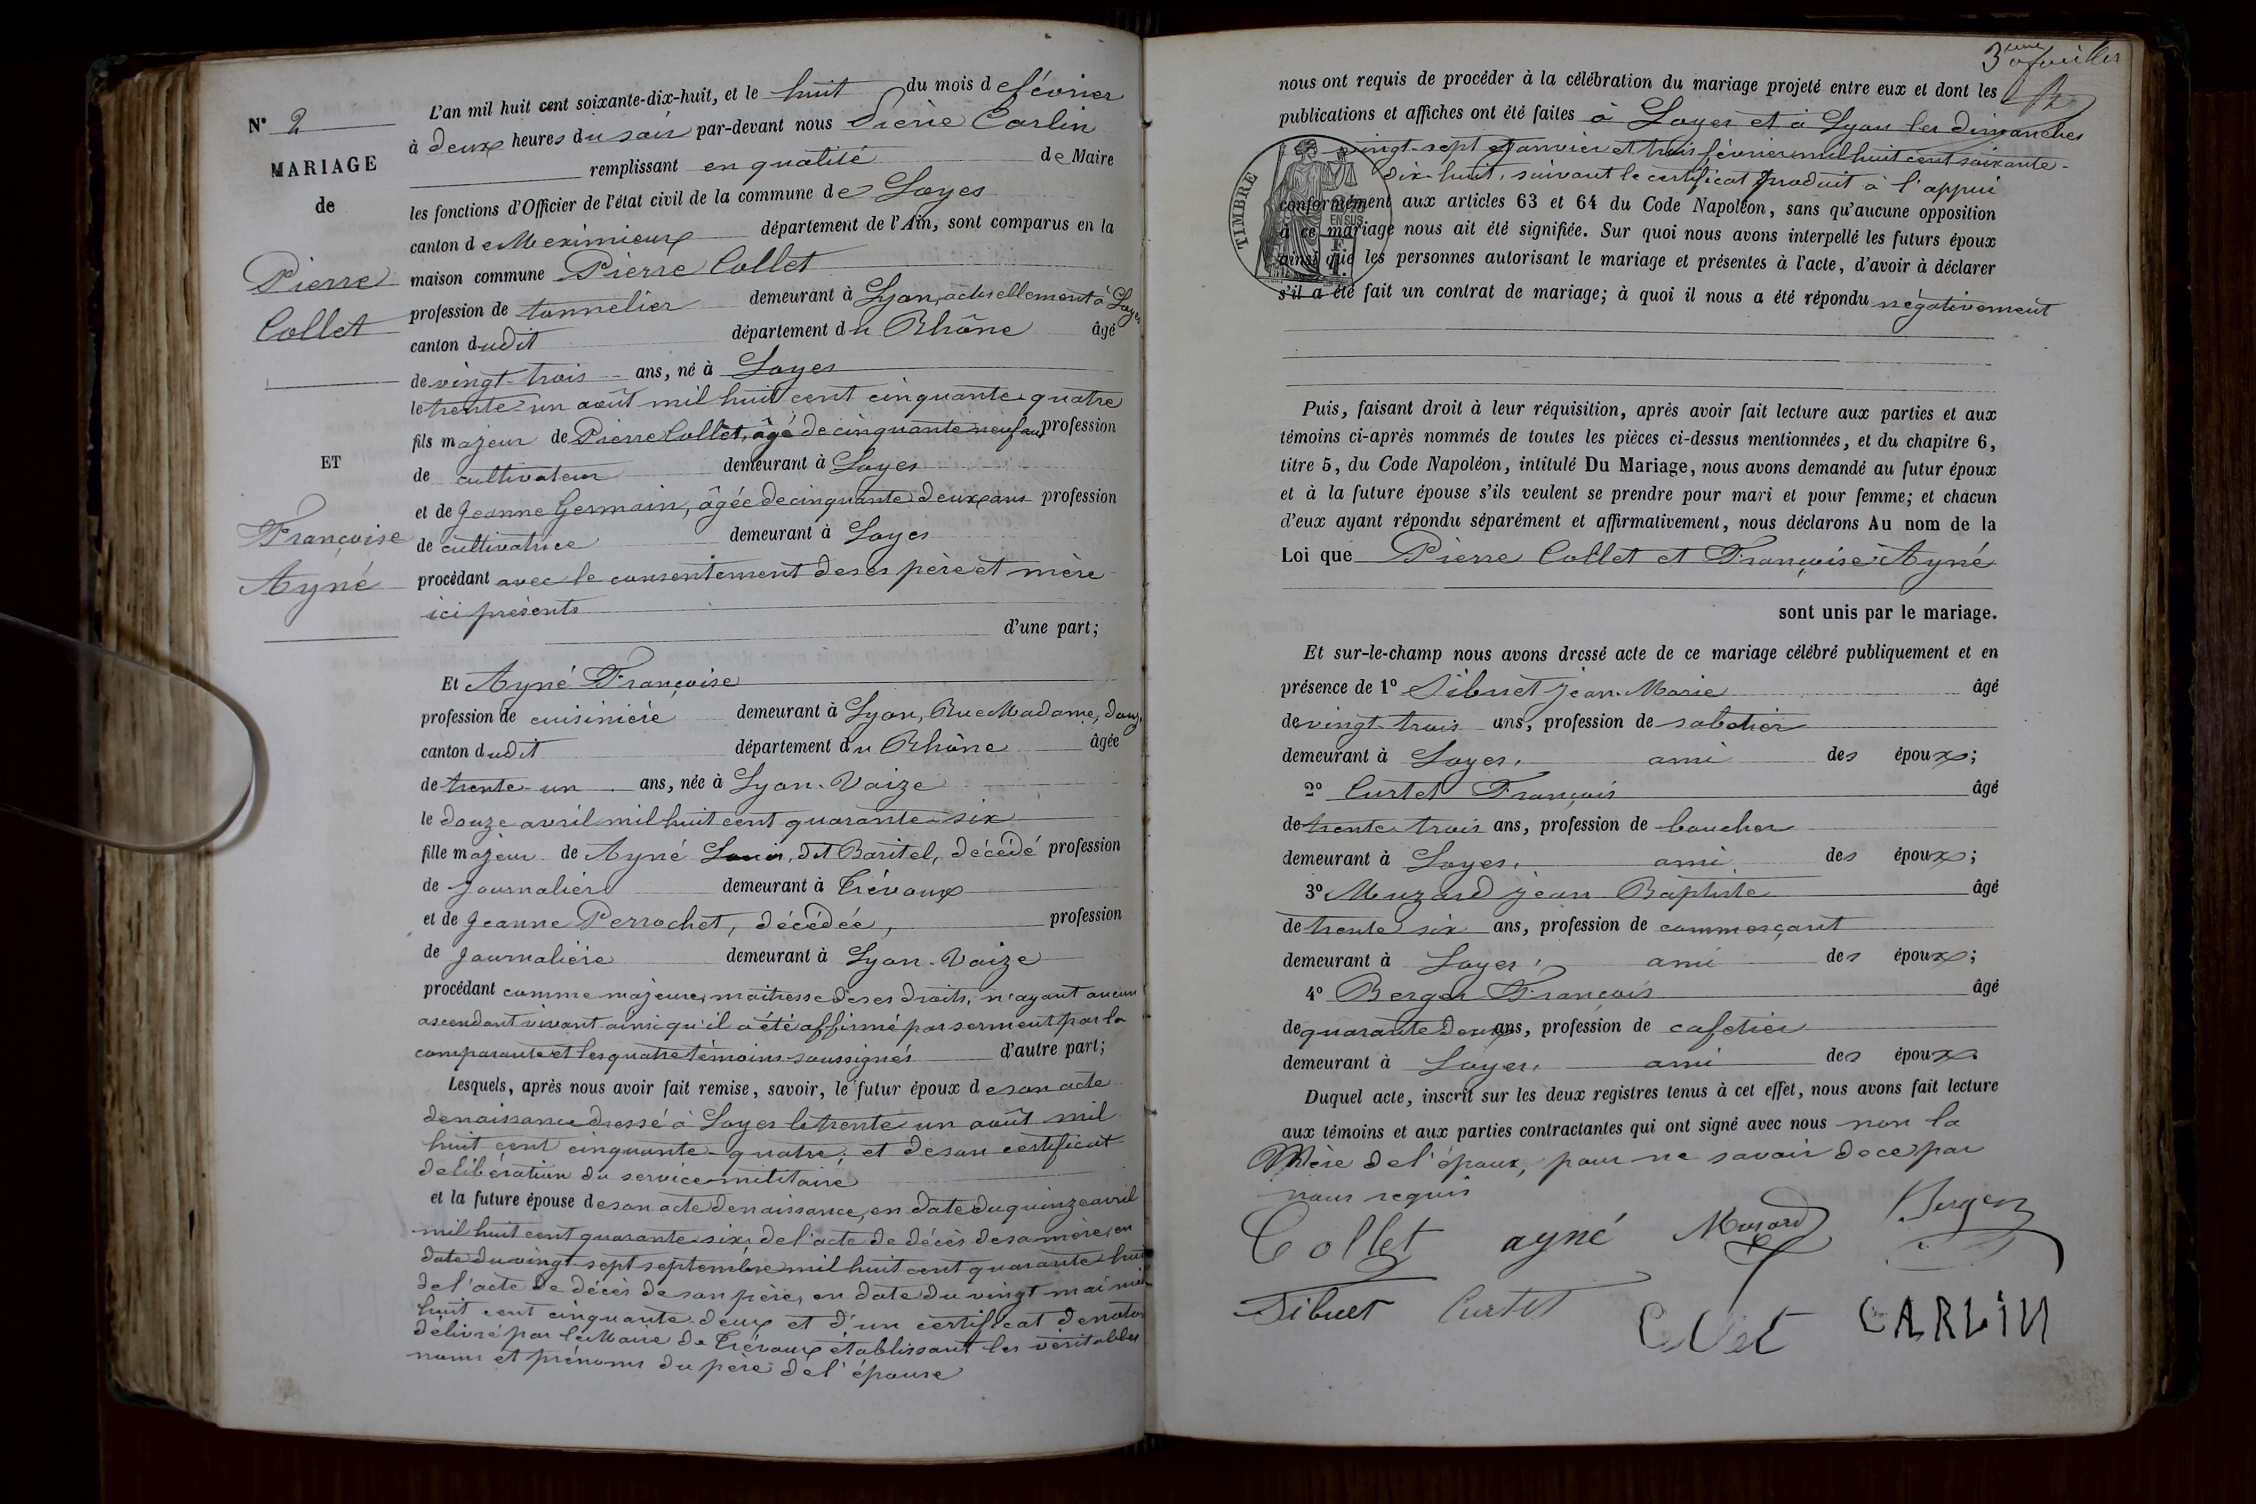 N° 2
MARIAGE
de
Pierre
Collet
ET
Françoise
Ayné
L'an mil huit cent soixante-dix-huit, et le huit du mois de février
à deux heures du soir par-devant nous Pierre Carlin
remplissant en qualité de Maire
les fonctions d'Officier de l'état civil de la commune de Loyes
canton de Meximieux département de l'Ain, sont comparus en la
maison commune Pierre Collet
profession de tonnelier demeurant à Lyon, actuellement à Loyes
canton dudit département du Rhône âgé
de vingt-trois ans, né à Loyes
le trente-un août mil huit cent cinquante quatre
fils majeur de Pierre Collet, âgé de cinquante neuf ans profession
de cultivateur demeurant à Loyes
et de Jeanne Germain, âgée de cinquante deux ans profession
de cultivatrice demeurant à Loyes
procédant avec le consentement de ses père et mère
ici présents
d'une part;
Et Ayné Françoise
profession de cuisinière demeurant à Lyon, Rue Madame, douze
canton dudit département du Rhône âgée
de trente-un ans, née à Lyon-Vaize
le douze avril mil huit cent quarante-six
fille majeur de Ayné Louis, dit Baritel, décédé profession
de journalier demeurant à Trévoux
et de Jeanne Perrochet, décédée, profession
de journalière demeurant à Lyon-Vaize
procédant comme majeure, maitresse de ses droits, n'ayant aucun
ascendant vivant ainsi qu'il a été affirmé par serment par la
comparante et les quatre témoins soussignés d'autre part;
Lesquels, après nous avoir fait remise, savoir, le futur époux de son acte
de naissance dressé à Loyes le trente un août mil
huit cent cinquante-quatre, et de son certificat
de libération du service militaire
et la future épouse de son acte de naissance, en date du quinze avril
mil huit cent quarante-six, de l'acte de décès de sa mère, en
date du vingt-sept septembre mil huit cent quarante huit
de l'acte de décès de son père, en date du vingt mai mil
huit cent cinquante deux et d'un certificat de notor
délivré par le Maire de Trévoux établissant les véritables
noms et prénoms du père de l'épouse
3eme feuillet
nous ont requis de procéder à la célébration du mariage projeté entre eux et dont les
publications et affiches ont été faites à Loyes et à Lyon les dimanches
vingt-sept Janvier et trois février mil huit cent soixante-
dix-huit, suivant le certificat produit à l'appui
TIMBRE
EN SUS.
conformément aux articles 63 et 64 du Code Napoléon, sans qu'aucune opposition
à ce mariage nous ait été signifiée. Sur quoi nous avons interpellé les futurs époux
ainsi que les personnes autorisant le mariage et présentes à l'acte, d'avoir à déclarer
s'il a été fait un contrat de mariage; à quoi il nous a été répondu négativement
Puis, faisant droit à leur réquisition, après avoir fait lecture aux parties et aux
témoins ci-après nommés de toutes les pièces ci-dessus mentionnées, et du chapitre 6,
titre 5, du Code Napoléon, intitulé Du Mariage, nous avons demandé au futur époux
et à la future épouse s'ils veulent se prendre pour mari et pour femme; et chacun
d'eux ayant répondu séparément et affirmativement, nous déclarons Au nom de la
Loi que Pierre Collet et Françoise Ayné
sont unis par le mariage.
Et sur-le-champ nous avons dressé acte de ce mariage célébré publiquement et en
présence de 1° Sibuet Jean-Marie âgé
de vingt-trois ans, profession de sabotier
demeurant à Loyes, ami des époux;
2° Curtet François âgé
de trente-trois ans, profession de boucher
demeurant à Loyes, ami des époux;
3° Muzard Jean Baptiste âgé
de trente six ans, profession de commerçant
demeurant à Loyes, ami des époux;
4° Berger François âgé
de quarante deux ans, profession de cafetier
demeurant à Loyes, ami des époux.
Duquel acte, inscrit sur les deux registres tenus à cet effet, nous avons fait lecture
aux témoins et aux parties contractantes qui ont signé avec nous non la
Mère de l'époux, pour ne savoir de ce par
nous requis
Collet ayné Musard Berger
Sibuet Curtet Collet CARLIN